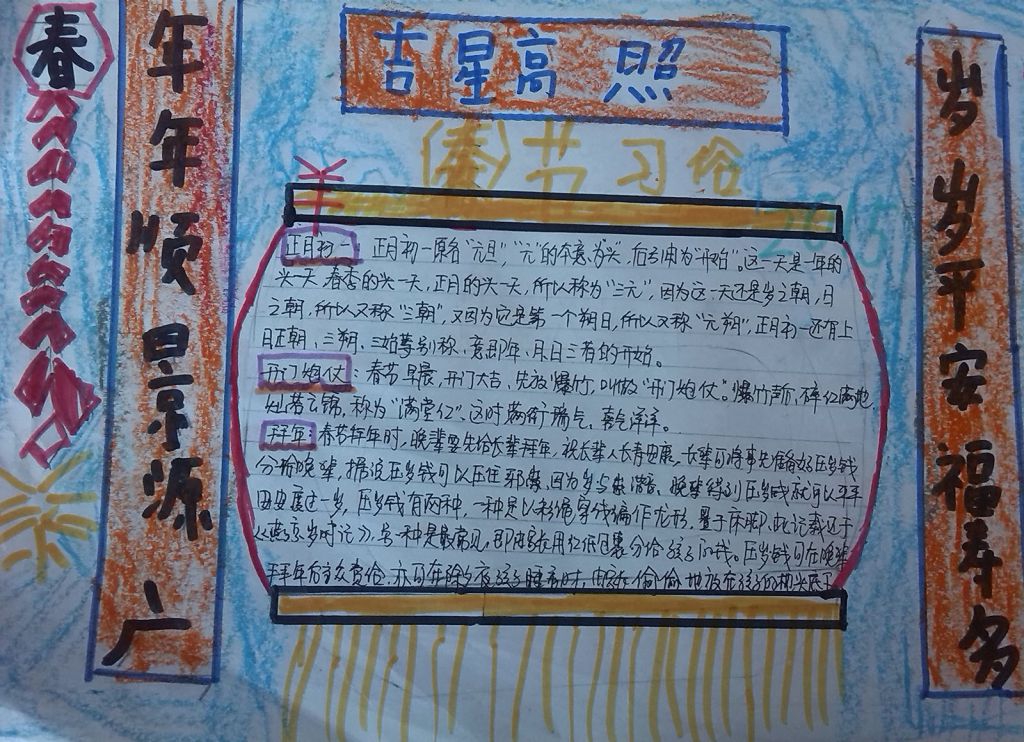 吉星高照
春
年年顺景源广
岁岁平安福寿多
春节习俗
正月初一：正月初一原名"元旦"，"元"的本意为兴，后引申为"开始"。这一天是一年的
兴一天，春季的兴一天，正月的兴一天，所以称为"三元"，因为这一天还是岁之朝，月
之朝，所以又称"三朝"，又因为它是第一个朔日，所以又称"元朔"，正月初一还有上
日正朝、三朔、三始等别称，意即年、月日三者的开始。
开门炮仗：春节早晨，开门大吉，先放爆竹，叫做"开门炮仗"。爆竹声后，碎红满地，
灿若云锦，称为"满堂红"。这时满街瑞气，喜气洋洋。
拜年：春节拜年时，晚辈要先给长辈拜年，祝长辈人长寿安康，长辈可将事先准备好压岁钱
分给晚辈，据说压岁钱可以压住邪祟，因为岁与祟谐音，晚辈得到压岁钱就可以平平
安安度过一岁，压岁钱有两种，一种是以彩绳穿线编作龙形，置于床脚，此记载见于
《燕京岁时记》，另一种是最常见，即由家长用红纸包裹分给孩子的钱。压岁钱可在晚辈
拜年后当众赏给，亦可在除夕夜孩子睡着时，由家长偷偷地放在孩子的枕头底下